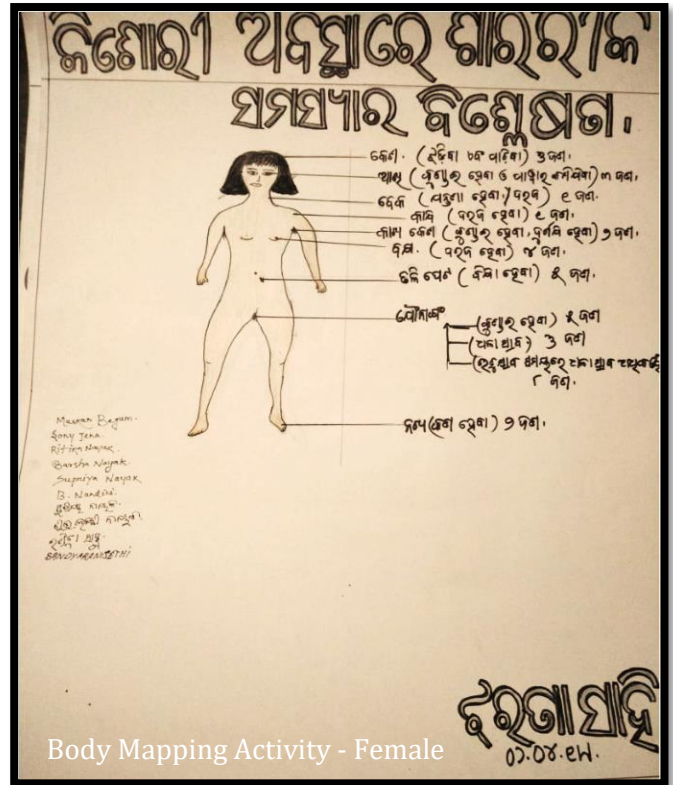 କିଶୋରୀ ଅବସ୍ଥାରେ ଶାରିରୀକ
ସମସ୍ୟାର ବିଶ୍ଳେଷଣ।
କେଶ. (ଝଡ଼ିବା ଚେ ପାଚିବା) ୬ ଜଣ.
ଆଖି (କୁଣ୍ଡାଇ ହେବା ଓ ପାଖାର) ୩ ଜଣ.
ବେକ (ଯନ୍ତ୍ରଣା ହେବା./ଦରଜ) ୧ ଜଣ.
କାନ୍ଧ (ଦରଜ ହେବା) ୧ ଜଣ.
କାଖ କେଶ (କୁଣ୍ଡାଇ ହେବା, ଦୁର୍ଗନ୍ଧ ହେବା) ୭ ଜଣ.
(ଦରଜ ହେବା) ୪ ଜଣ.
ତଳି ପେଟ (ବିନ୍ଧା ହେବା) ୫ ଜଣ.
ଯୌନାଙ୍ଗ
(କୁଣ୍ଡାଇ ହେବା) ୫ ଜଣ
(ଧଳା ସ୍ରାବ) ୬ ଜଣ
(ଋତୁସ୍ରାବ ସମୟରେ ଧଳା ସ୍ରାବ
୮ ଜଣ.
ନଖ (ହେବା) ୭ ଜଣ.
Begum.
Sony Jena.
Ritika Nayak.
Barsha Nayak.
Supriya Nayak
B. Nandini.
SANDYARANI SETHI
ଝରଣା ସାହି
Body Mapping Activity - Female